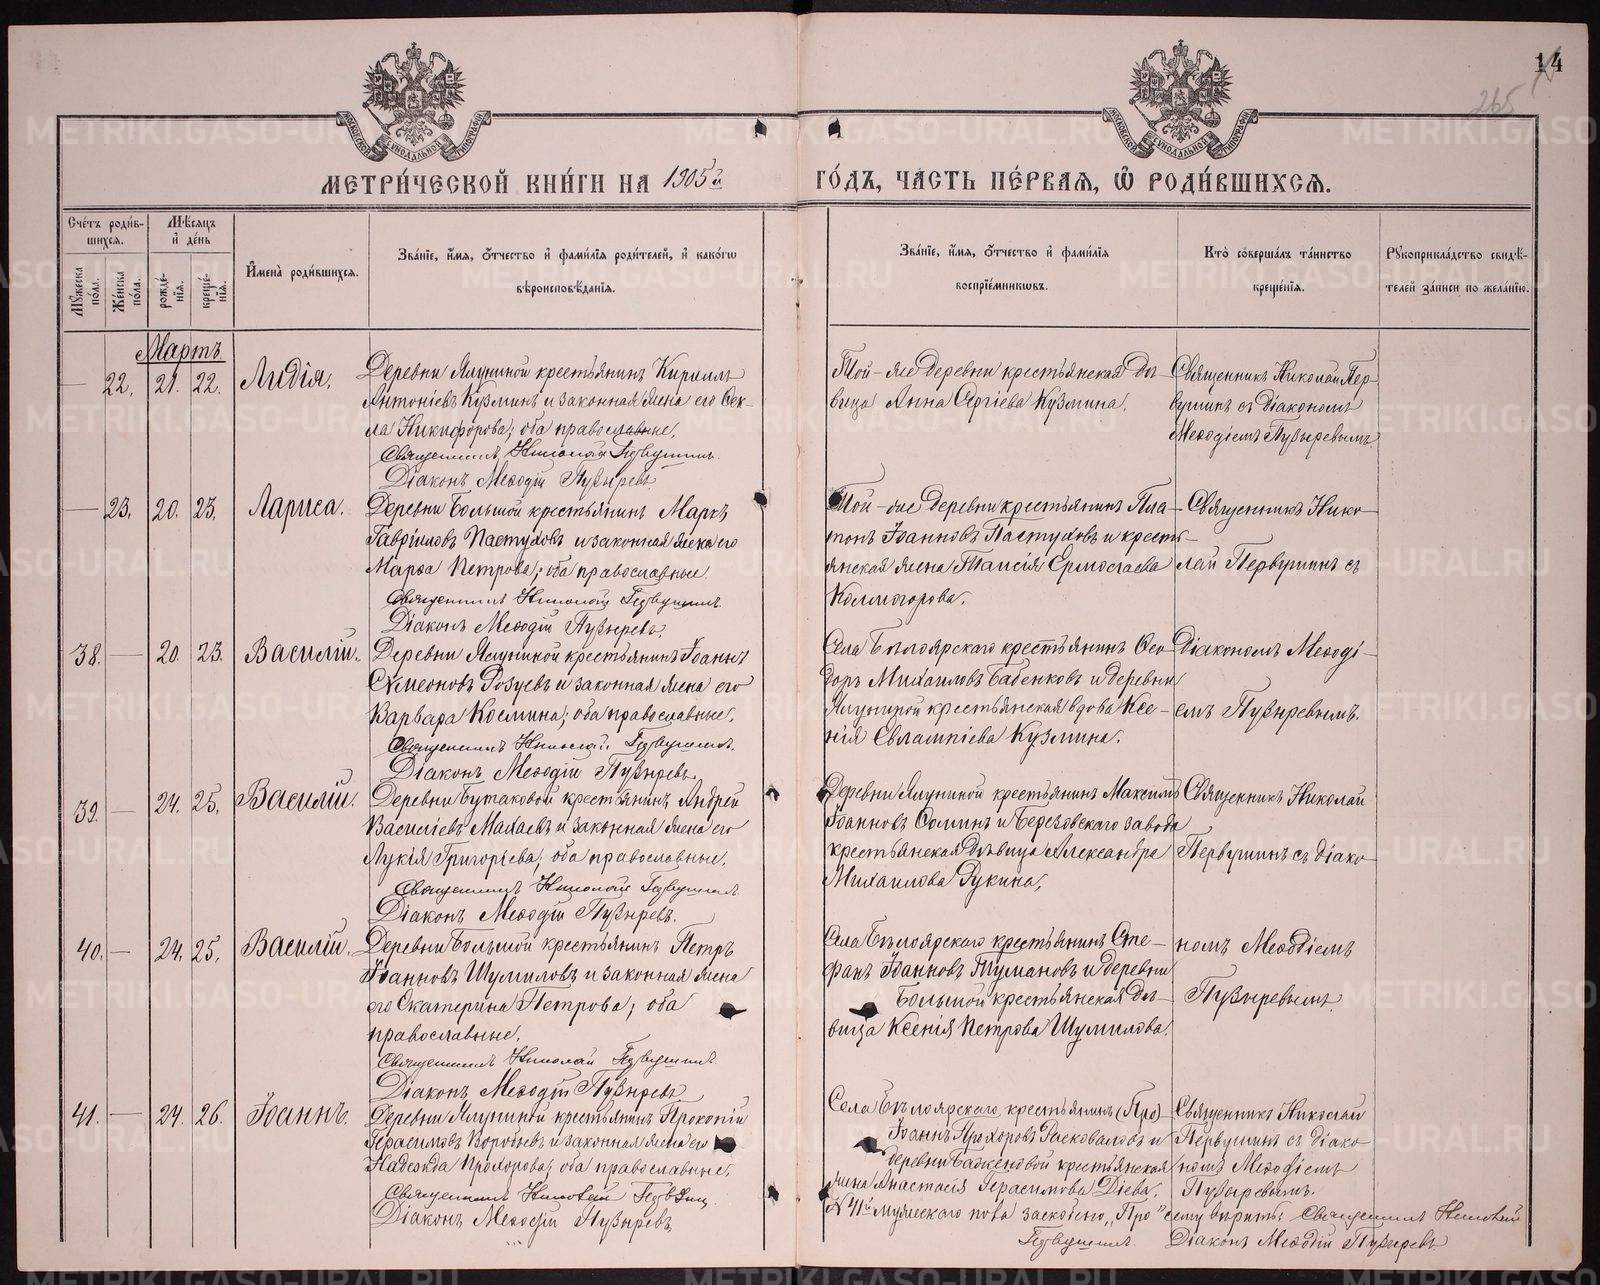 14
265
МЕТРИ́ЧЕСКОЙ КНИ́ГИ НА 1905й ГО́ДЪ, ЧА́СТЬ ПЕ́РВАЯ, Ѡ҆ РОДИ́ВШИХСЯ.
Сче́тъ роди́вшихся.
Мꙋ́жеска пола̀.
Же́нска пола̀.
Мѣ́сяцъ и҆ де́нь
рожде́нїѧ.
креще́нїѧ.
И҆мена̀ роди́вшихсѧ.
Зва́нїе, и҆́мѧ, ѻ҆́тчество и҆ фами́лїѧ роди́телей, и҆ како́гѡ
вѣроисповѣ́данїѧ.
Зва́нїе, и҆́мѧ, ѻ҆́тчество и҆ фами́лїѧ
воспрїе́мникѡвъ.
Кто̀ соверша́лъ та́инство
креще́нїѧ.
Рꙋкоприкла́дство свидѣ́-
телей за́писи по жела́нїю.
Мартъ
— 22. 21. 22. Лидія.
Деревни Ялуниной крестьянинъ Кириллъ
Антоніевъ Кузминъ и законная жена его Ѳек-
ла Никифорова; оба православные.
Священникъ Николай Первушинъ.
Діаконъ Меѳодій Пузыревъ.
Той-же деревни крестьянская дѣ-
вица Анна Сергіева Кузмина.
Священникъ Николай Пер-
вушинъ съ діакономъ
Меѳодіемъ Пузыревымъ.
— 23. 20. 23. Лариса.
Деревни Большой крестьянинъ Маркъ
Гавріиловъ Пастуховъ и законная жена его
Марѳа Петрова; оба православные.
Священникъ Николай Первушинъ.
Діаконъ Меѳодій Пузыревъ.
Той-же деревни крестьянинъ Пла-
тонъ Іоанновъ Пастуховъ и кресть-
янская жена Таисія Ермолаева
Колмогорова.
Священникъ Нико-
лай Первушинъ съ
38. — 20. 23. Василій.
Деревни Ялуниной крестьянинъ Іоаннъ
Симеоновъ Розуевъ и законная жена его
Варвара Космина; оба православные.
Священникъ Николай Первушинъ.
Діаконъ Меѳодій Пузыревъ.
Села Бѣлоярскаго крестьянинъ Ѳео-
доръ Михаиловъ Бабенковъ и деревни
Ялуниной крестьянская вдова Ксе-
нія Евлампіева Кузмина.
Діакономъ Меѳоді-
емъ Пузыревымъ.
39. — 24. 25. Василій.
Деревни Бутаковой крестьянинъ Андрей
Василіевъ Махаевъ и законная жена его
Лукія Григоріева; оба православные.
Священникъ Николай Первушинъ.
Діаконъ Меѳодій Пузыревъ.
Деревни Ялуниной крестьянинъ Максимъ
Іоанновъ Соминъ и Березовскаго завода
крестьянская дѣвица Александра
Михаилова Рукина.
Священникъ Николай
Первушинъ съ діако-
40. — 24. 25. Василій.
Деревни Большой крестьянинъ Петръ
Іоанновъ Шумиловъ и законная жена
его Екатерина Петрова; оба
православные.
Священникъ Николай Первушинъ.
Діаконъ Меѳодій Пузыревъ.
Села Бѣлоярскаго крестьянинъ Сте-
фанъ Іоанновъ Тумановъ и деревни
Большой крестьянская дѣ-
вица Ксенія Петрова Шумилова.
номъ Меѳодіемъ
Пузыревымъ.
41. — 24. 26. Іоаннъ.
Деревни Ялуниной крестьянинъ Прокопій
Герасимовъ Воробьевъ и законная жена его
Надежда Прохорова; оба православные.
Священникъ Николай Первушинъ.
Діаконъ Меѳодій Пузыревъ.
Села Бѣлоярскаго крестьянинъ (Про)
Іоаннъ Прохоровъ Расковаловъ и
деревни Баженовой крестьянская
жена Анастасія Герасимова Діева.
Священникъ Николай
Первушинъ съ діако-
номъ Меѳодіемъ
Пузыревымъ.
№ 41й мужескаго пола заскоблено „Про" сему вѣрить: Священникъ Николай
Первушинъ. Діаконъ Меѳодій Пузыревъ